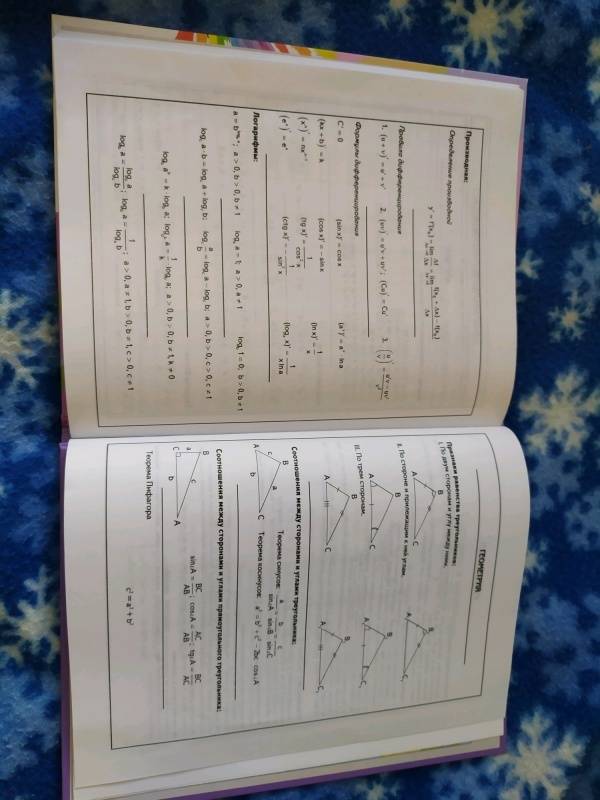 Производная:
Определение производной
y' = f'(x₀) = lim Δf/Δx = lim f(x₀ + Δx) − f(x₀)/Δx
Правила дифференцирования
1. (u + v)' = u' + v' 2. (uv)' = u'v + uv'; (Cu)' = Cu' 3. (u/v)' = u'v − uv'/v²
Формулы дифференцирования
C' = 0 (sin x)' = cos x (aˣ)' = aˣ ln a
(kx + b)' = k (cos x)' = − sin x (ln x)' = 1/x
(xⁿ)' = nxⁿ⁻¹ (tg x)' = 1/cos² x (logₐ x)' = 1/x ln a
(eˣ)' = eˣ (ctg x)' = − 1/sin² x
Логарифмы:
a > 0, b > 0, b ≠ 1 logₐ a = 1; a > 0, a ≠ 1 log_b 1 = 0; b > 0, b ≠ 1
log_c a · b = log_c a + log_c b; log_c a/b = log_c a − log_c b; a > 0, b > 0, c > 0, c ≠ 1
a > 0, b > 0, b ≠ 1, k ≠ 0
a > 0, a ≠ 1, b > 0, b ≠ 1, c > 0, c ≠ 1
ГЕОМЕТРИЯ
Признаки равенства треугольников:
I. По двум сторонам и углу между ними.
B
A
C
B₁
A₁
C₁
II. По стороне и прилежащим к ней углам.
B
A
C
B₁
A₁
C₁
III. По трем сторонам.
B
A
C
B₁
A₁
C₁
Соотношения между сторонами и углами треугольника:
B
c
a
A
b
C
Теорема синусов: a/sin∠A = b/sin∠B = c/sin∠C
Теорема косинусов: a² = b² + c² − 2bc · cos∠A
Соотношения между сторонами и углами прямоугольного треугольника:
B
a
c
C
b
A
sin∠A = BC/AB; cos∠A = AC/AB; tg∠A = BC/AC
Теорема Пифагора
c² = a² + b²